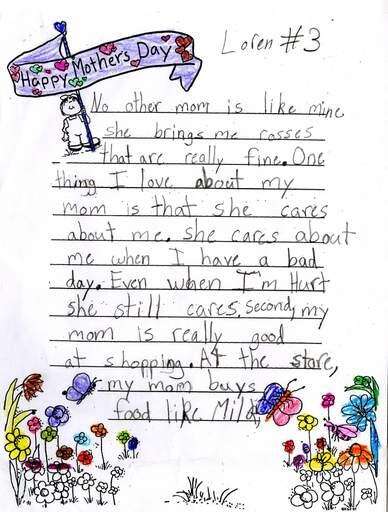 Happy Mother's Day
Loren #3
No other mom is like mine
she brings me rosses
that are really fine. One
thing I love about my
mom is that she cares
about me. she cares about
me when I have a bad
day. Even when I'm Hurt
she still cares. second, my
mom is really good
at shopping. At the store,
my mom buys
food like Milk,